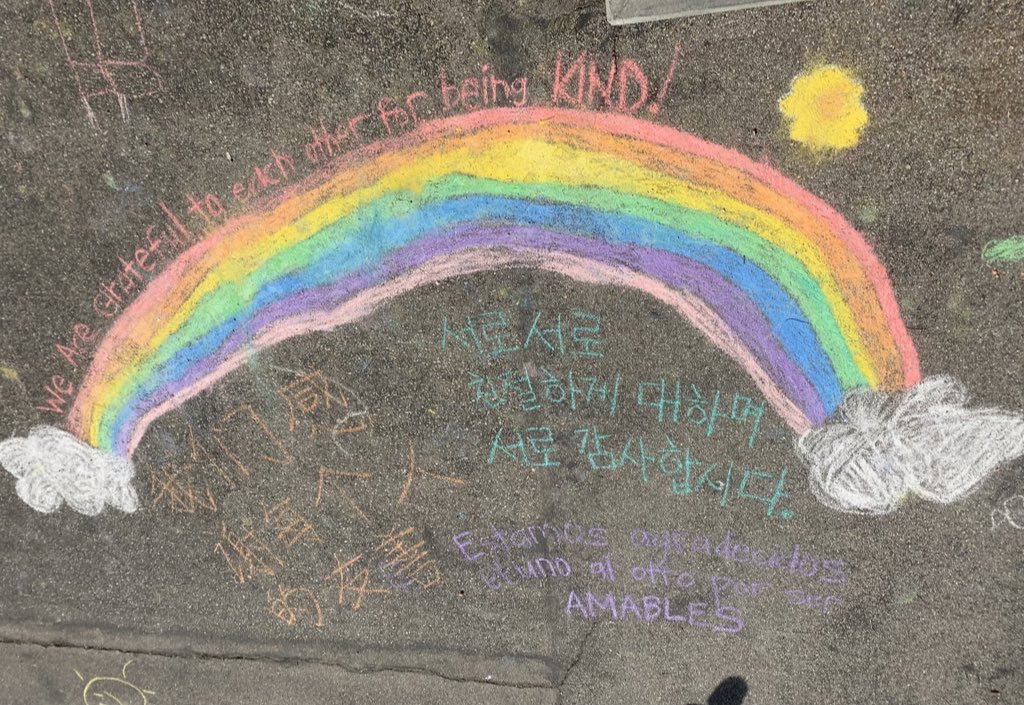 We Are Grateful to each other for being KIND!
서로서로
친절하게 대하며
서로 감사합시다.
我们感
谢每个人
的友善
Estamos agradecidos
el uno al otro por ser
AMABLES